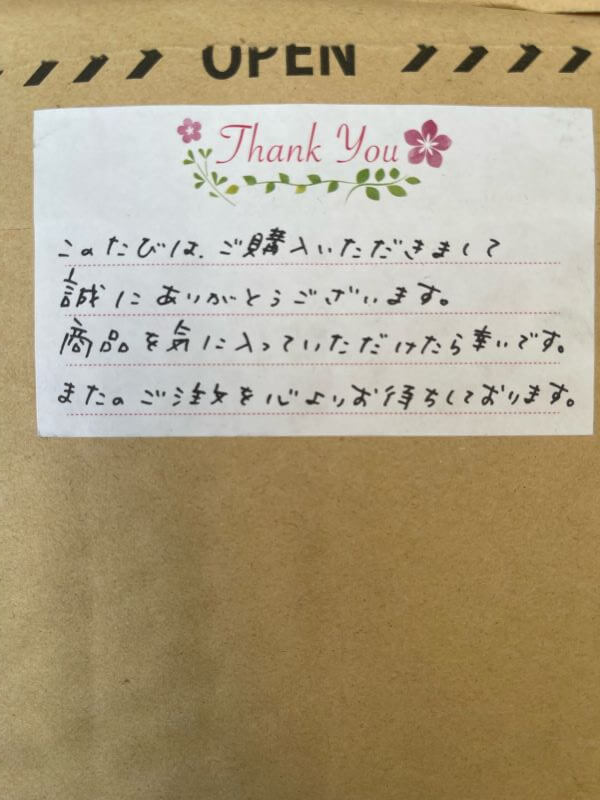 OPEN
Thank You
このたびは、ご購入いただきまして
誠にありがとうございます。
商品を気に入っていただけたら幸いです。
またのご注文を心よりお待ちしております。